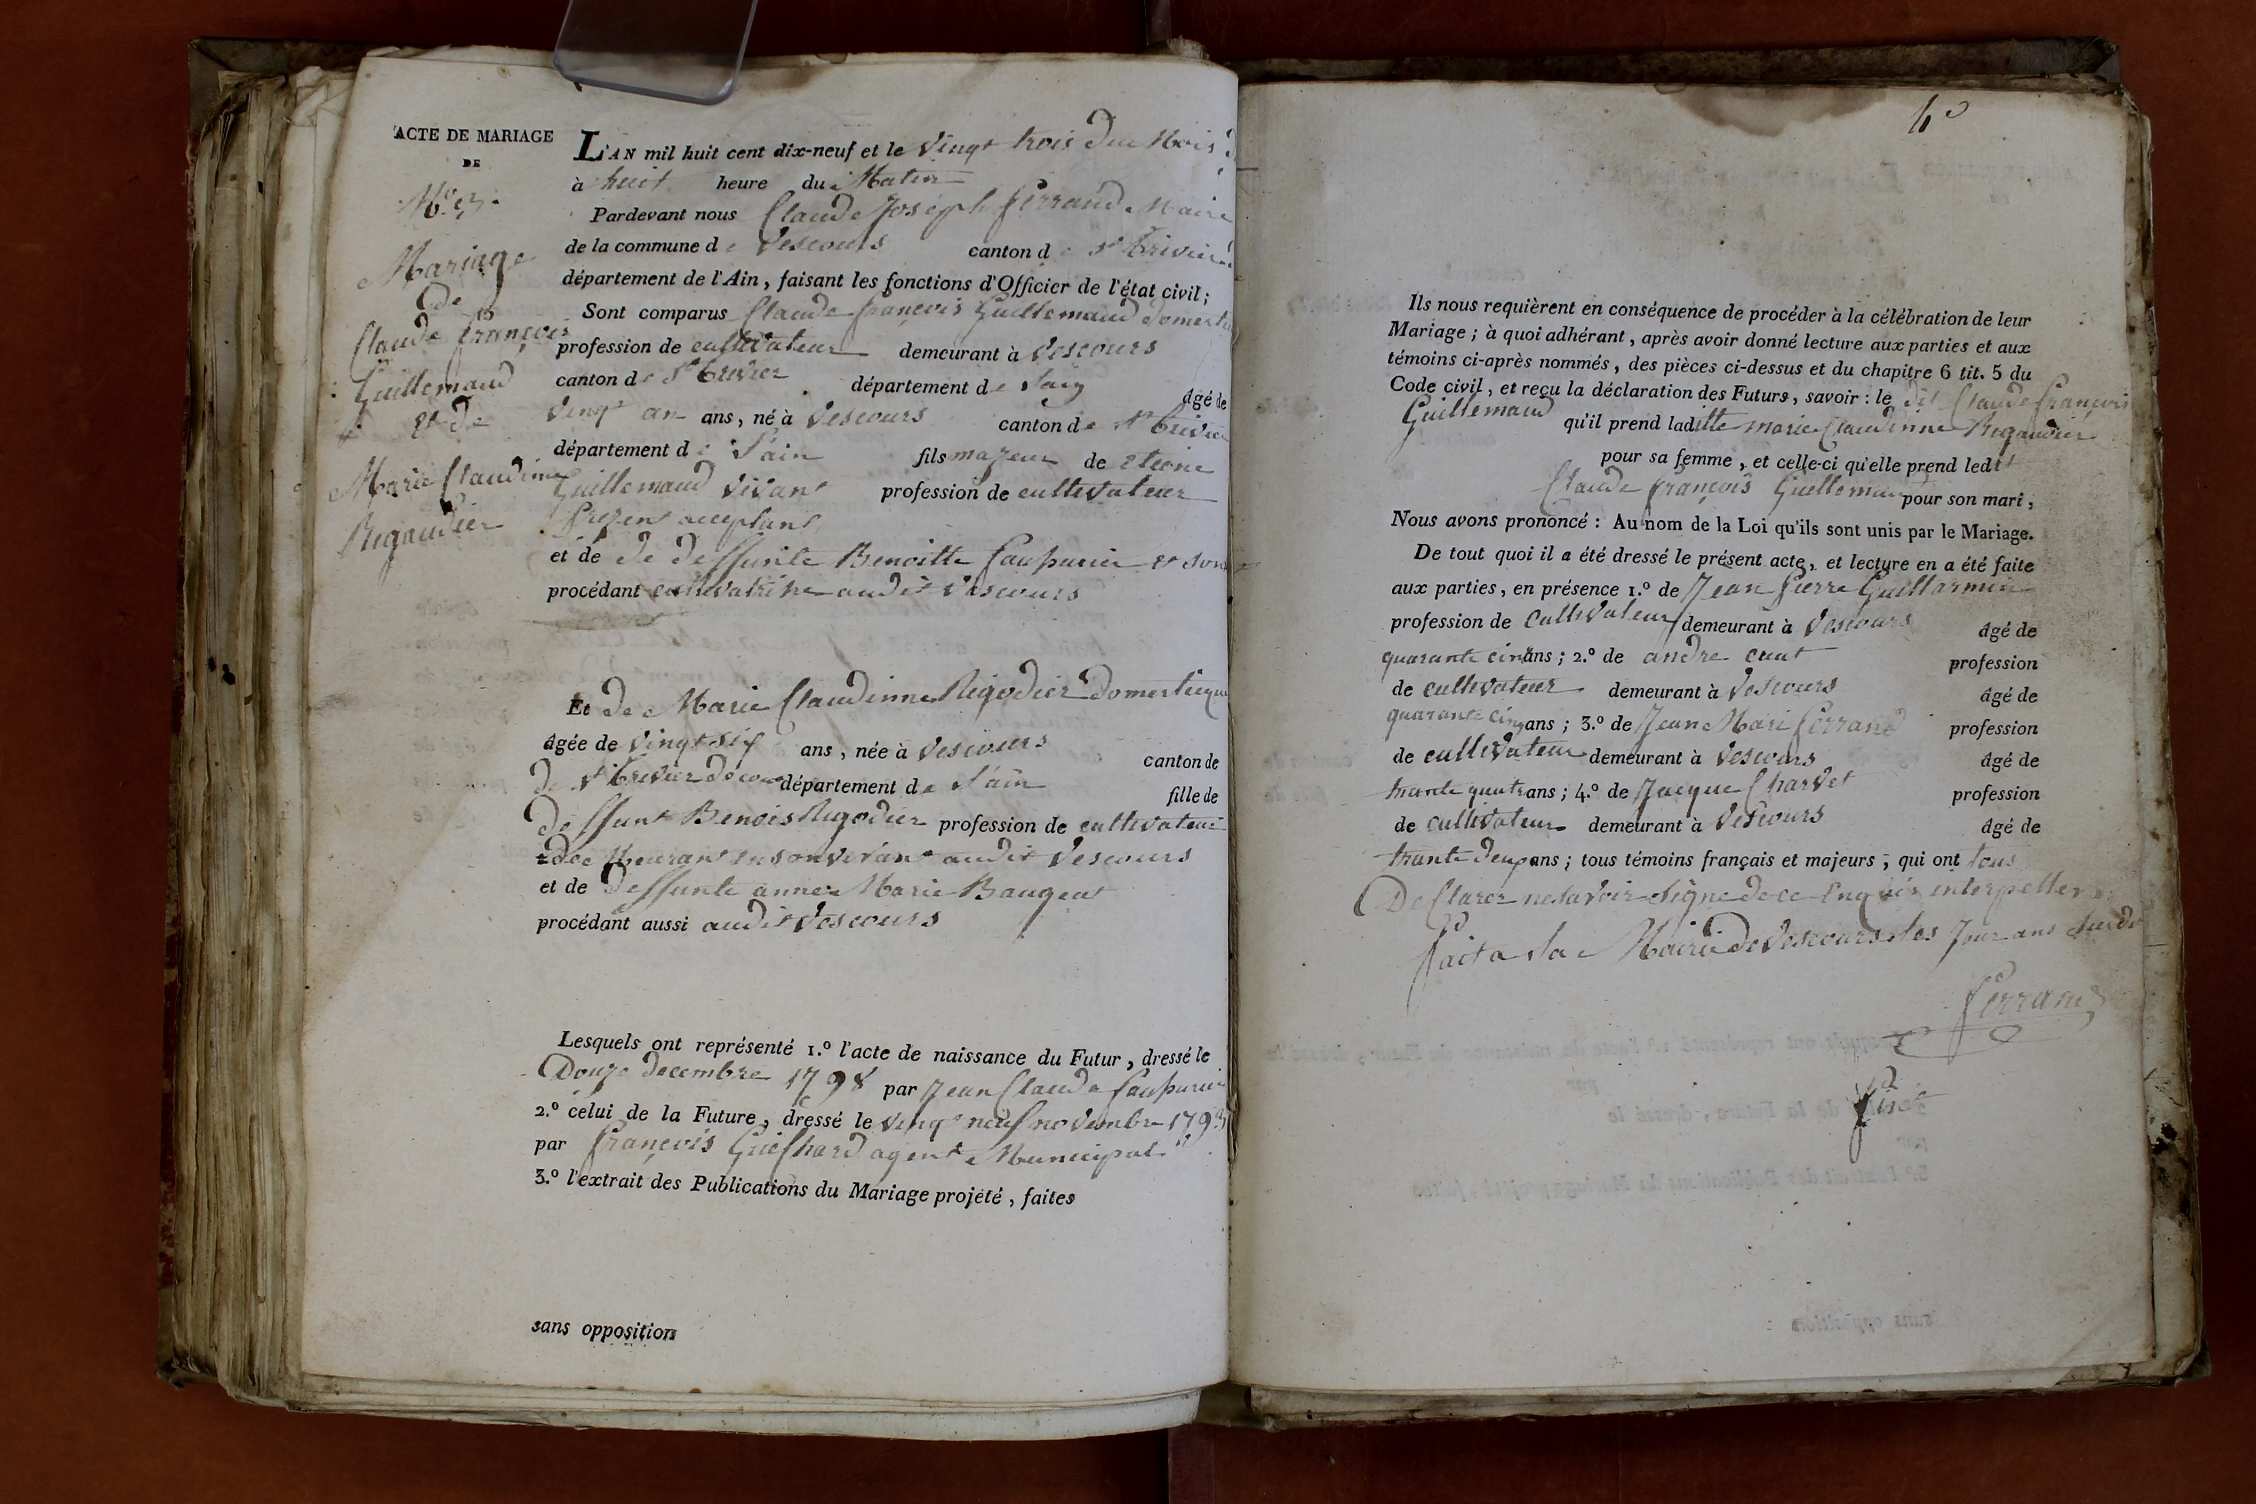 ACTE DE MARIAGE
DE
Mariage
de
Claude françois
Guillemaud
Et de
Marie Claudinne
Rigaudier
L'AN mil huit cent dix-neuf et le vingt trois du Mois
à huit heure du Matin
Pardevant nous Claude Joseph ferrand Maire
de la commune de Vescours canton de st trivier
département de l'Ain, faisant les fonctions d'Officier de l'état civil;
Sont comparus Claude françois Guillemaud
profession de cultivateur demeurant à Vescours
canton de st trivier département de
âgé de
vingt an ans, né à Vescours canton de st trivier
département de l'ain fils majeur de
Guillemaud vivant profession de cultivateur
présent acceptant
et de de deffunte Benoitte
procédant cultivatrice audit Vescours
Et de Marie Claudinne Rigodier
âgée de vingt six ans, née à Vescours
canton de
de st trivier de cour département de l'ain
fille de
deffunt Benois Rigodier profession de cultivateur
audit Vescours
et de deffunte anne Marie
procédant aussi audit Vescours
Lesquels ont représenté 1.º l'acte de naissance du Futur, dressé le
Douze decembre 1798 par Jean Claude
2.º celui de la Future, dressé le vingt neuf novembre
par françois agent Municipal
3.º l'extrait des Publications du Mariage projeté, faites
sans opposition
Ils nous requièrent en conséquence de procéder à la célébration de leur
Mariage; à quoi adhérant, après avoir donné lecture aux parties et aux
témoins ci-après nommés, des pièces ci-dessus et du chapitre 6 tit. 5 du
Code civil, et reçu la déclaration des Futurs, savoir: le dit Claude françois
Guillemaud qu'il prend laditte marie Claudinne Rigaudier
pour sa femme, et celle-ci qu'elle prend ledit
Claude françois Guillemaud pour son mari,
Nous avons prononcé: Au nom de la Loi qu'ils sont unis par le Mariage.
De tout quoi il a été dressé le présent acte, et lecture en a été faite
aux parties, en présence 1.º de Jean pierre Guillarmin
profession de Cultivateur demeurant à Vescours âgé de
quarante cinq ans; 2.º de andre profession
de cultivateur demeurant à Vescours âgé de
quarante cinq ans; 3.º de Jean Mari ferrand profession
de cultivateur demeurant à Vescours âgé de
trante quatre ans; 4.º de Jacque Charvet profession
de cultivateur demeurant à Vescours âgé de
trante deux ans; tous témoins français et majeurs, qui ont tous
Declarer ne savoir signe de ce Enquis interpeller
fait a la Mairie de Vescours les Jour ans susdit
ferrand